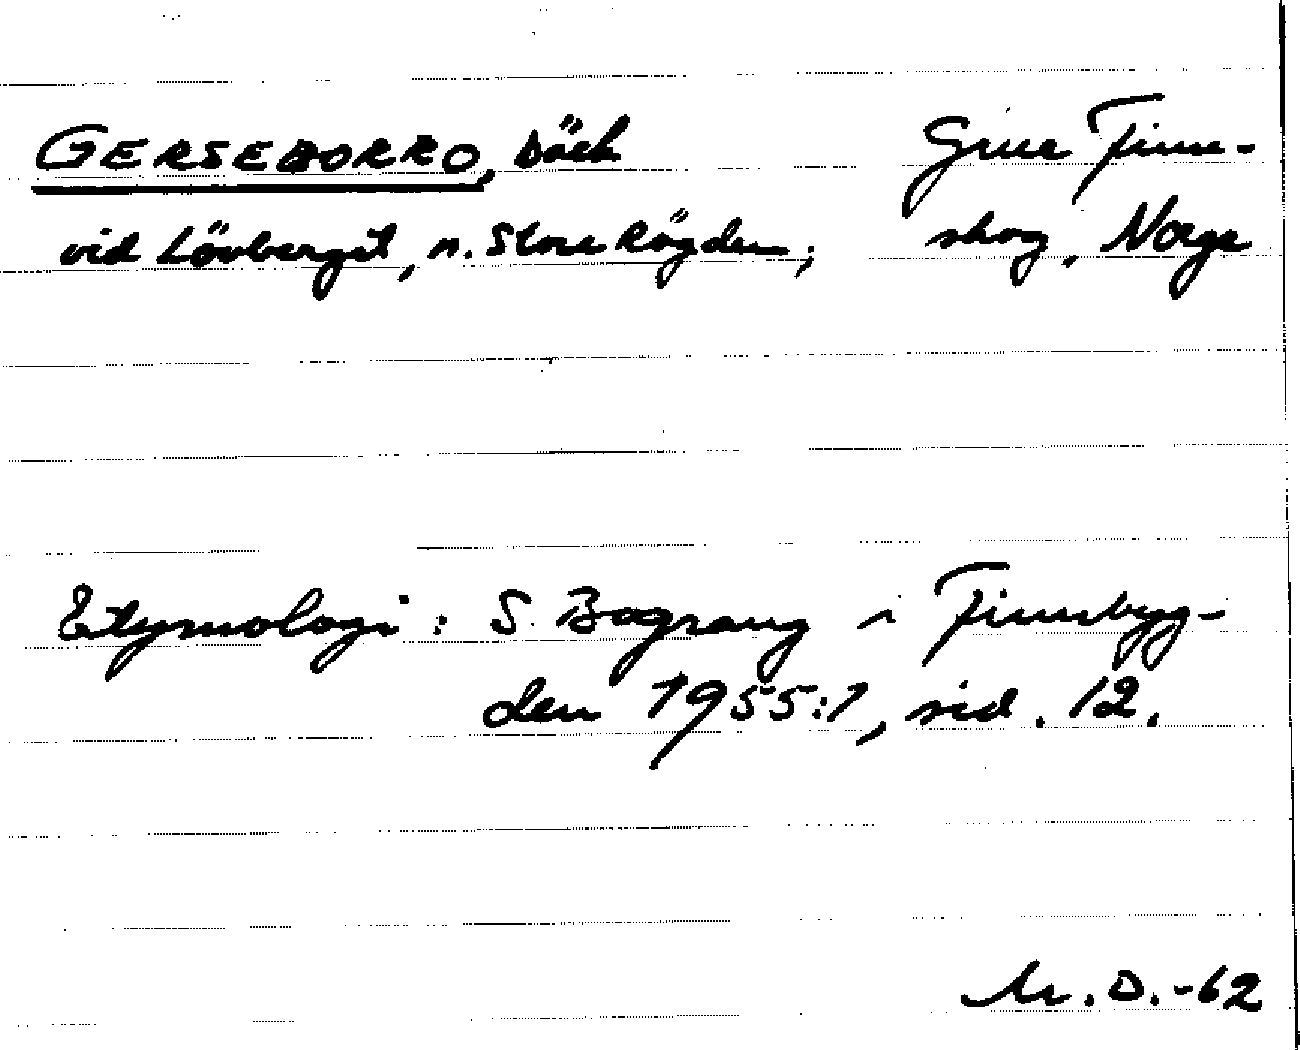 GERSEBORRO, bäck
Grue Finn-
vid Lövberget, n. Store Rögden;
skog, Norge
Etymologi: S. Bograng i Finnbyg-
den 1955:1, sid. 12.
M.D.-62